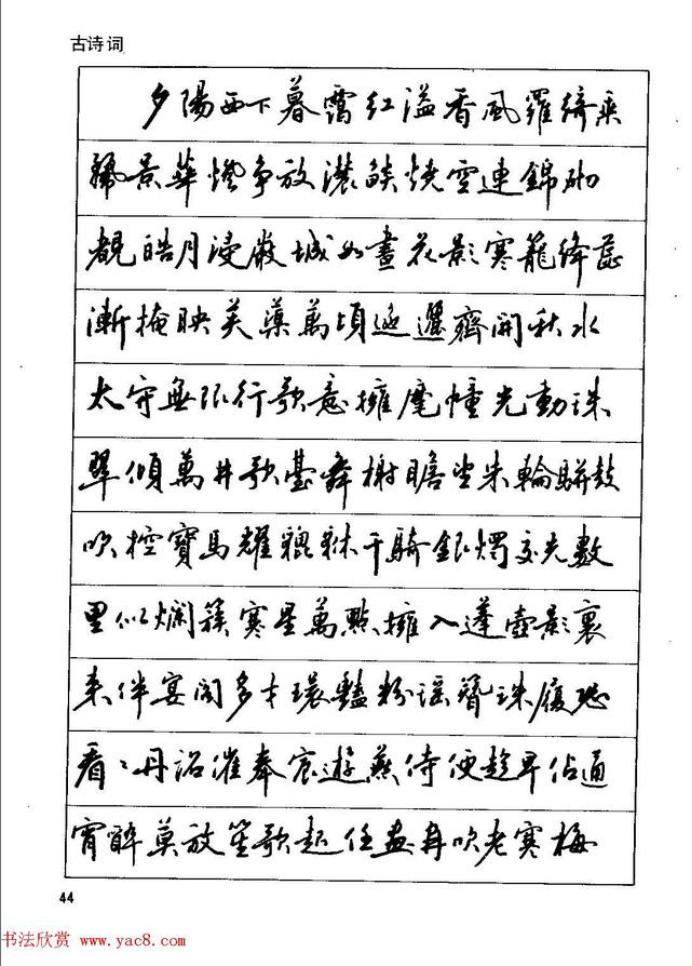 古诗词
夕陽西下暮靄红溢香風羅綺乘
麗景華燈争放濃燄燒空連錦砌
覩皓月浸嚴城如畫花影寒籠絳蕊
漸掩映芙蕖萬頃迤邐齊開秋水
太守無限行歌意擁麾幢光動珠
翠傾萬井歌臺舞榭瞻望朱輪駢鼓
吹控寶馬耀貔貅千騎銀燭交光數
里似爛簇寒星萬點擁入蓬壺影裏
来伴宴閣多才環豔粉瑶簪珠履恐
看〻丹詔催奉宸遊燕侍便趁早佔通
宵醉莫放笙歌起任畫角吹老寒梅
44
书法欣赏 www.yac8.com